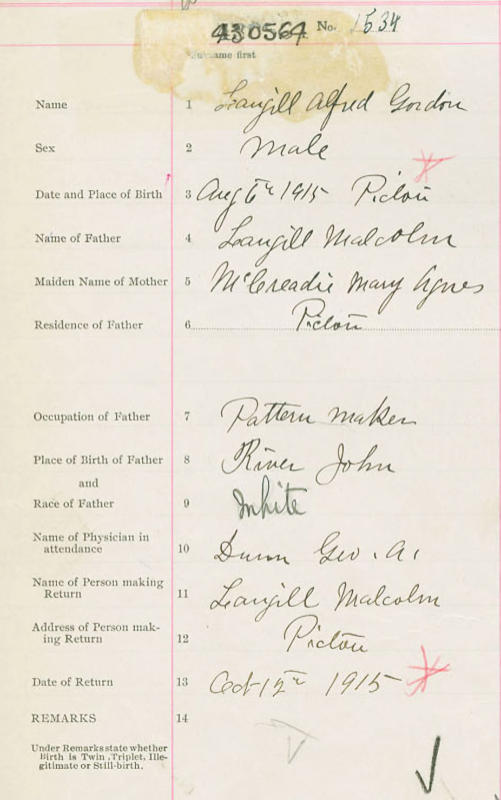 430564 No. 1534
Surname first
Name 1 Langill Alfred Gordon
Sex 2 Male
Date and Place of Birth 3 Aug 6th 1915 Pictou
Name of Father 4 Langill Malcolm
Maiden Name of Mother 5 McCreadie Mary Agnes
Residence of Father 6 Pictou
Occupation of Father 7 Pattern maker
Place of Birth of Father 8 River John
and
Race of Father 9 White
Name of Physician in
attendance 10 Dunn Geo. A.
Name of Person making
Return 11 Langill Malcolm
Address of Person mak-
ing Return 12 Pictou
Date of Return 13 Oct 12th 1915
REMARKS 14
Under Remarks state whether
Birth is Twin, Triplet, Ille-
gitimate or Still-birth.